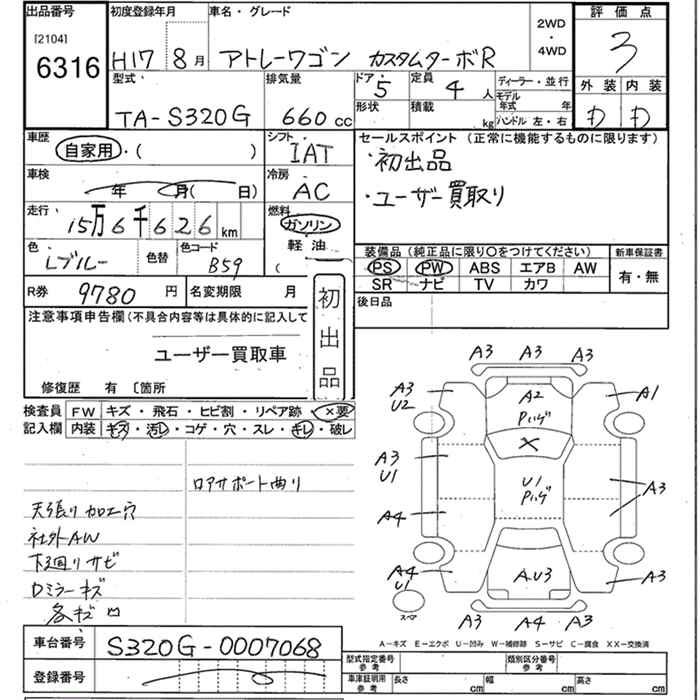 出品番号 [2104] 6316
初度登録年月 H17 8月
車名・グレード アトレーワゴン カスタムターボR
2WD・4WD
評価点 3
型式 TA-S320G
排気量 660cc
ドア 5
定員 4人
形状
積載 kg
ディーラー・並行
モデル年式 年
ハンドル 左・右
外装 内装
D D
車歴 自家用・( )
シフト IAT
セールスポイント（正常に機能するものに限ります）
・初出品
・ユーザー買取り
車検 年 月( 日)
冷房 AC
走行 15万6千626km
燃料 ガソリン
軽油
(
色 Lブルー
色替
色コード B59
装備品（純正品に限り○をつけてください）
新車保証書
PS PW ABS エアB AW
SR ナビ TV カワ
有・無
R券 9780円
名変期限 月
後日品
初出品
注意事項申告欄(不具合内容等は具体的に記入して
ユーザー買取車
修復歴 有 〔箇所
検査員記入欄
FW キズ・飛石・ヒビ割・リペア跡・×要
内装 キズ・汚レ・コゲ・穴・スレ・キレ・破レ
ロアサポート曲り
天張り加工穴
社外AW
下廻りサビ
Dミラーキズ
A3 A3 A3
A3 U2
A2 Pハゲ
A1
×
A3 U1
U1 Pハゲ
A3
A4
A4 U1
A.U3
A3
スペア
A3 A4 A3
A-キズ E-エクボ U-凹み W-補修跡 S-サビ C-腐食 XX-交換済
車台番号 S320G-0007068
登録番号
型式指定番号 参考
類別区分番号 参考
車庫証明用 参考
長さ cm
幅 cm
高さ cm